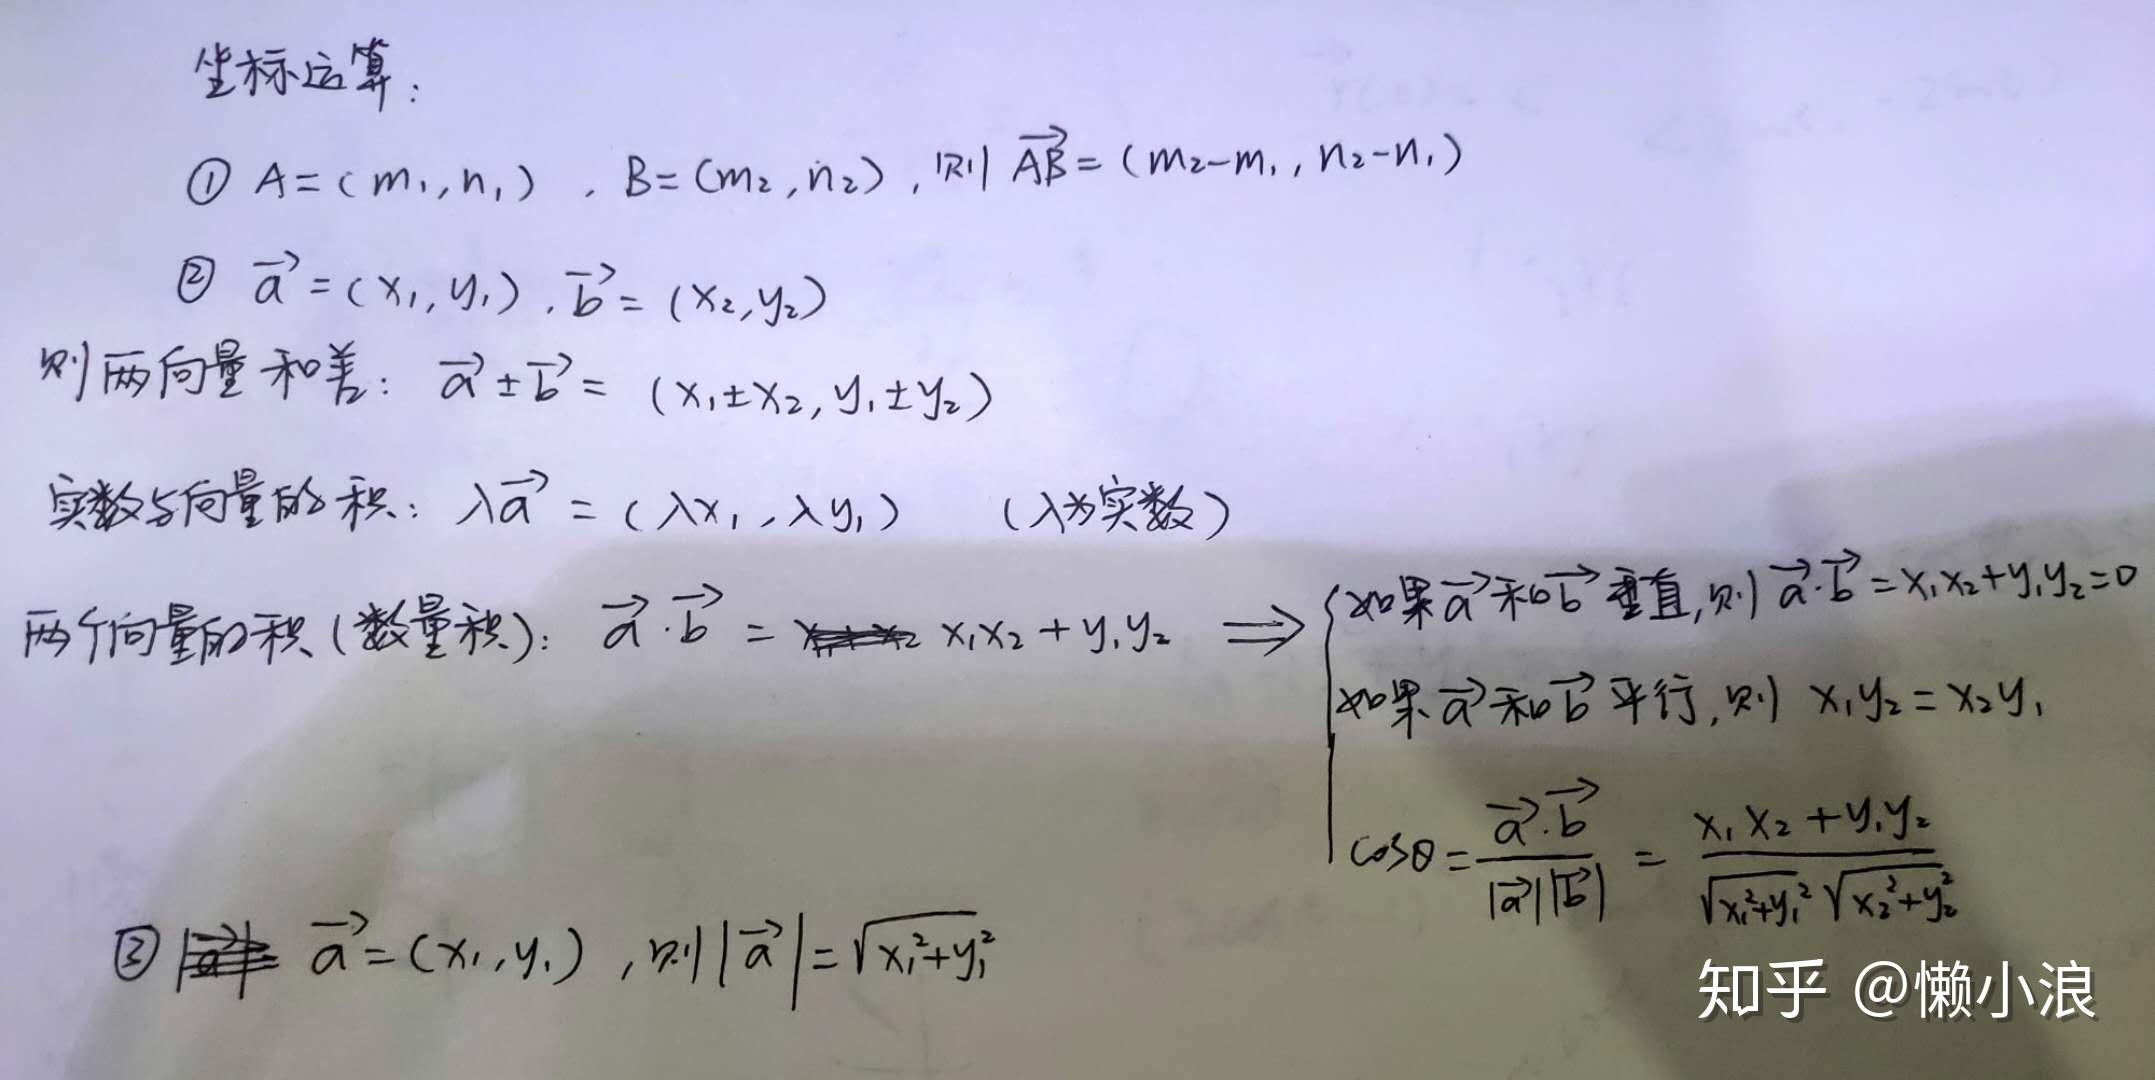 坐标运算：
① A=(m₁,n₁) , B=(m₂,n₂) , 则 $\overrightarrow{AB}$=(m₂-m₁, n₂-n₁)
② $\vec{a}$=(x₁,y₁) , $\vec{b}$=(x₂,y₂)
则两向量和差： $\vec{a}$±$\vec{b}$=(x₁±x₂, y₁±y₂)
实数与向量的积： λ$\vec{a}$=(λx₁, λy₁) (λ为实数)
两个向量的积(数量积)： $\vec{a}$·$\vec{b}$ = x₁x₂+y₁y₂ ⟹
如果$\vec{a}$和$\vec{b}$垂直,则$\vec{a}$·$\vec{b}$=x₁x₂+y₁y₂=0
如果$\vec{a}$和$\vec{b}$平行,则 x₁y₂=x₂y₁
$\cosθ=\frac{\vec{a}·\vec{b}}{|\vec{a}||\vec{b}|}=\frac{x_1x_2+y_1y_2}{\sqrt{x_1^2+y_1^2}\sqrt{x_2^2+y_2^2}}$
③ $\vec{a}$=(x₁,y₁) , 则|$\vec{a}$|=$\sqrt{x_1^2+y_1^2}$
知乎 @懒小浪